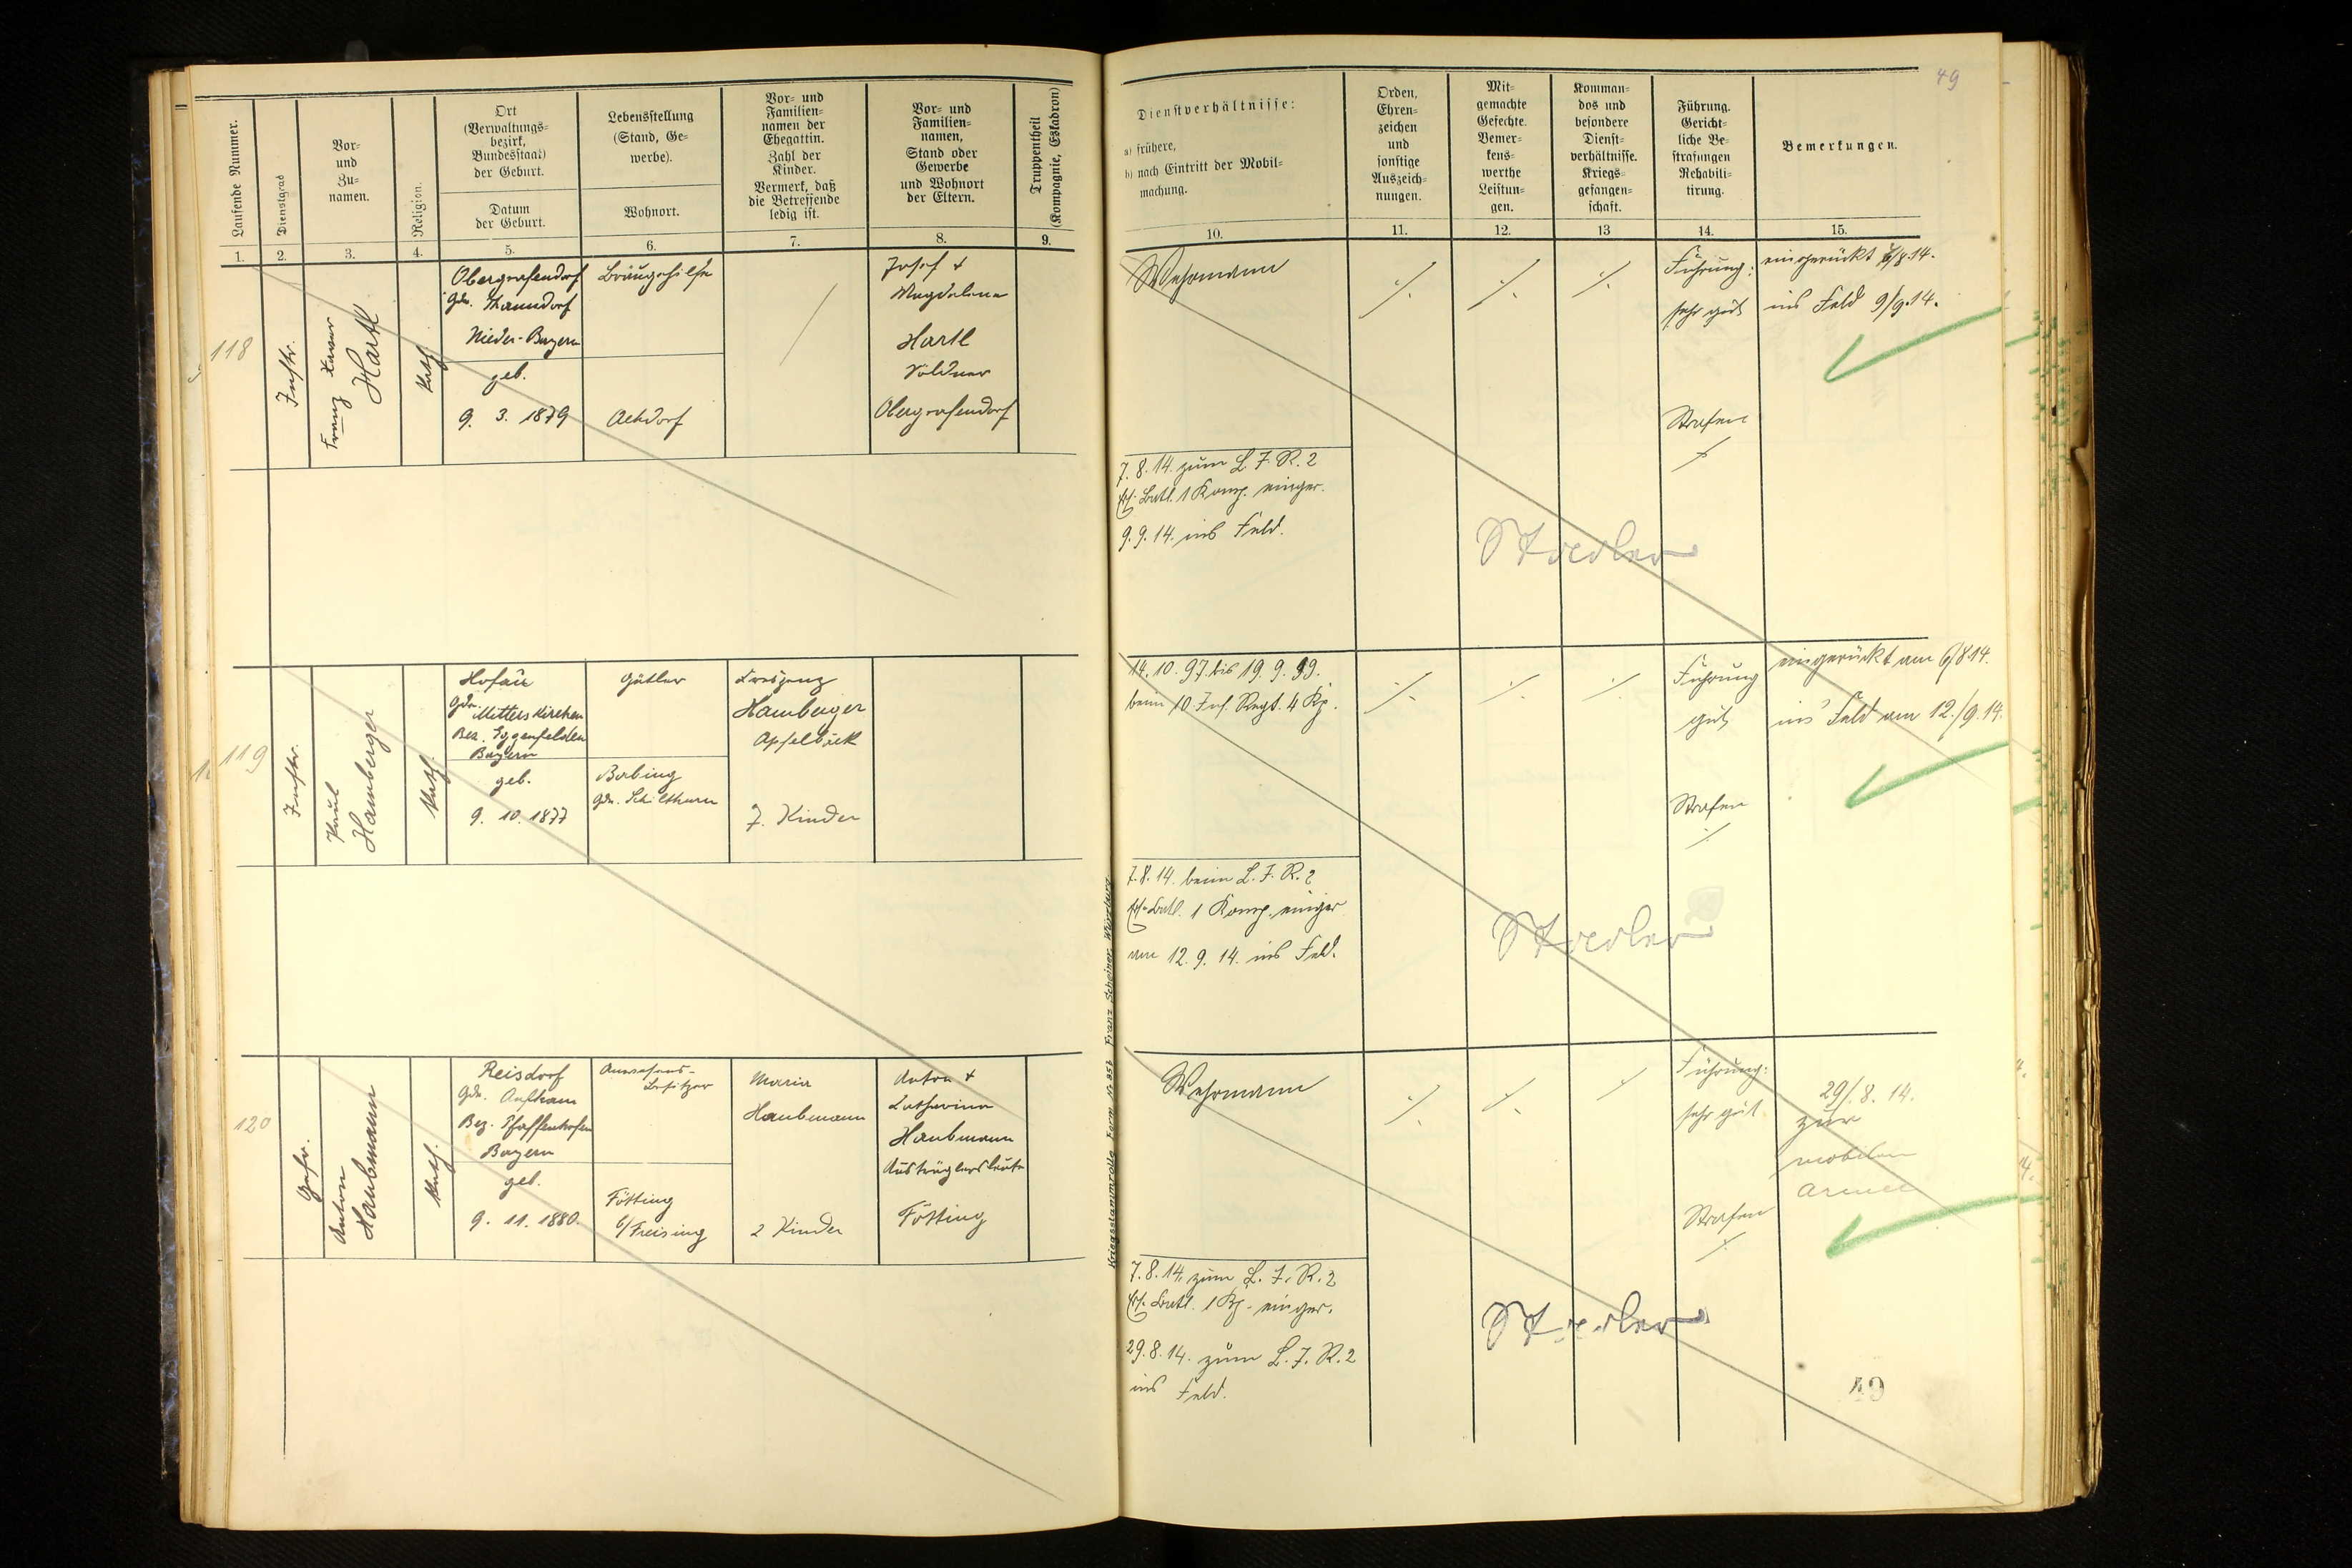 49
Laufende Nummer.
Dienstgrad
Vor-
und
Zu-
namen.
Religion.
Ort
(Verwaltungs-
bezirk,
Bundesstaat)
der Geburt.
Datum
der Geburt.
Lebensstellung
(Stand, Ge-
werbe).
Wohnort.
Vor- und
Familien-
namen der
Ehegattin.
Zahl der
Kinder.
Vermerk, daß
die Betreffende
ledig ist.
Vor- und
Familien-
namen,
Stand oder
Gewerbe
und Wohnort
der Eltern.
Truppentheil
(Kompagnie, Eskadron)
Dienstverhältnisse:
a) frühere,
b) nach Eintritt der Mobil-
machung.
Orden,
Ehren-
zeichen
und
sonstige
Auszeich-
nungen.
Mit-
gemachte
Gefechte.
Bemer-
kens-
werthe
Leistun-
gen.
Komman-
dos und
besondere
Dienst-
verhältnisse.
Kriegs-
gefangen-
schaft.
Führung.
Gericht-
liche Be-
strafungen
Rehabili-
tirung.
Bemerkungen.
1. 2. 3. 4. 5. 6. 7. 8. 9. 10. 11. 12. 13 14. 15.
118
Inftr.
Franz Xaver
Hartl
Kath.
Obergrafendorf
Gde. Thanndorf
Nieder-Bayern
geb.
9. 3. 1879
Bräugehilfe
Achdorf
Josef +
Magdalena
Hartl
Söldner
Obergrafendorf
Wehrmann
7. 8. 14. zum L. I. R. 2
Ers. Batl. 1 Komp. einger.
9. 9. 14. ins Feld.
Führung:
sehr gut
Strafen
eingerückt 6/8.14.
ins Feld 9/9.14.
119
Inftr.
Paul
Hamberger
Kath.
Hofau
Gde.
Mitterskirchen
Bez. Eggenfelden
Bayern
geb.
9. 10. 1877
Gütler
Babing
Gde. Schilthurn
Kreszenz
Hamberger
Apfelböck
7. Kinder
14. 10. 97. bis 19. 9. 99.
beim 10. Inf. Regt. 4 Kp.
7. 8. 14. beim L. I. R. 2
Ers. Batl. 1 Komp. einger
am 12. 9. 14. ins Feld.
Führung
gut
Strafen
eingerückt am 6/8 14.
ins Feld am 12./9. 14.
120
Gefr.
Anton
Haubmann
Kath.
Reisdorf
Gde. Aufham
Bez. Pfaffenhofen
Bayern
geb.
9. 11. 1880.
Anwesens-
besitzer
Fötting
b/Freising
Maria
Haubmann
2 Kinder
Anton +
Katharina
Haubmann
Austräglersleute
Fötting
Wehrmann
7. 8. 14. zum L. I. R. 2
Ers. Batl. 1 Kp. einger.
29. 8. 14. zum L. I. R. 2
ins Feld.
Führung:
sehr gut.
Strafen
29/. 8. 14.
zur
mobilen
Armee
49
Kriegsstammrolle Form Nr. 85 b Franz Scheiner, Würzburg